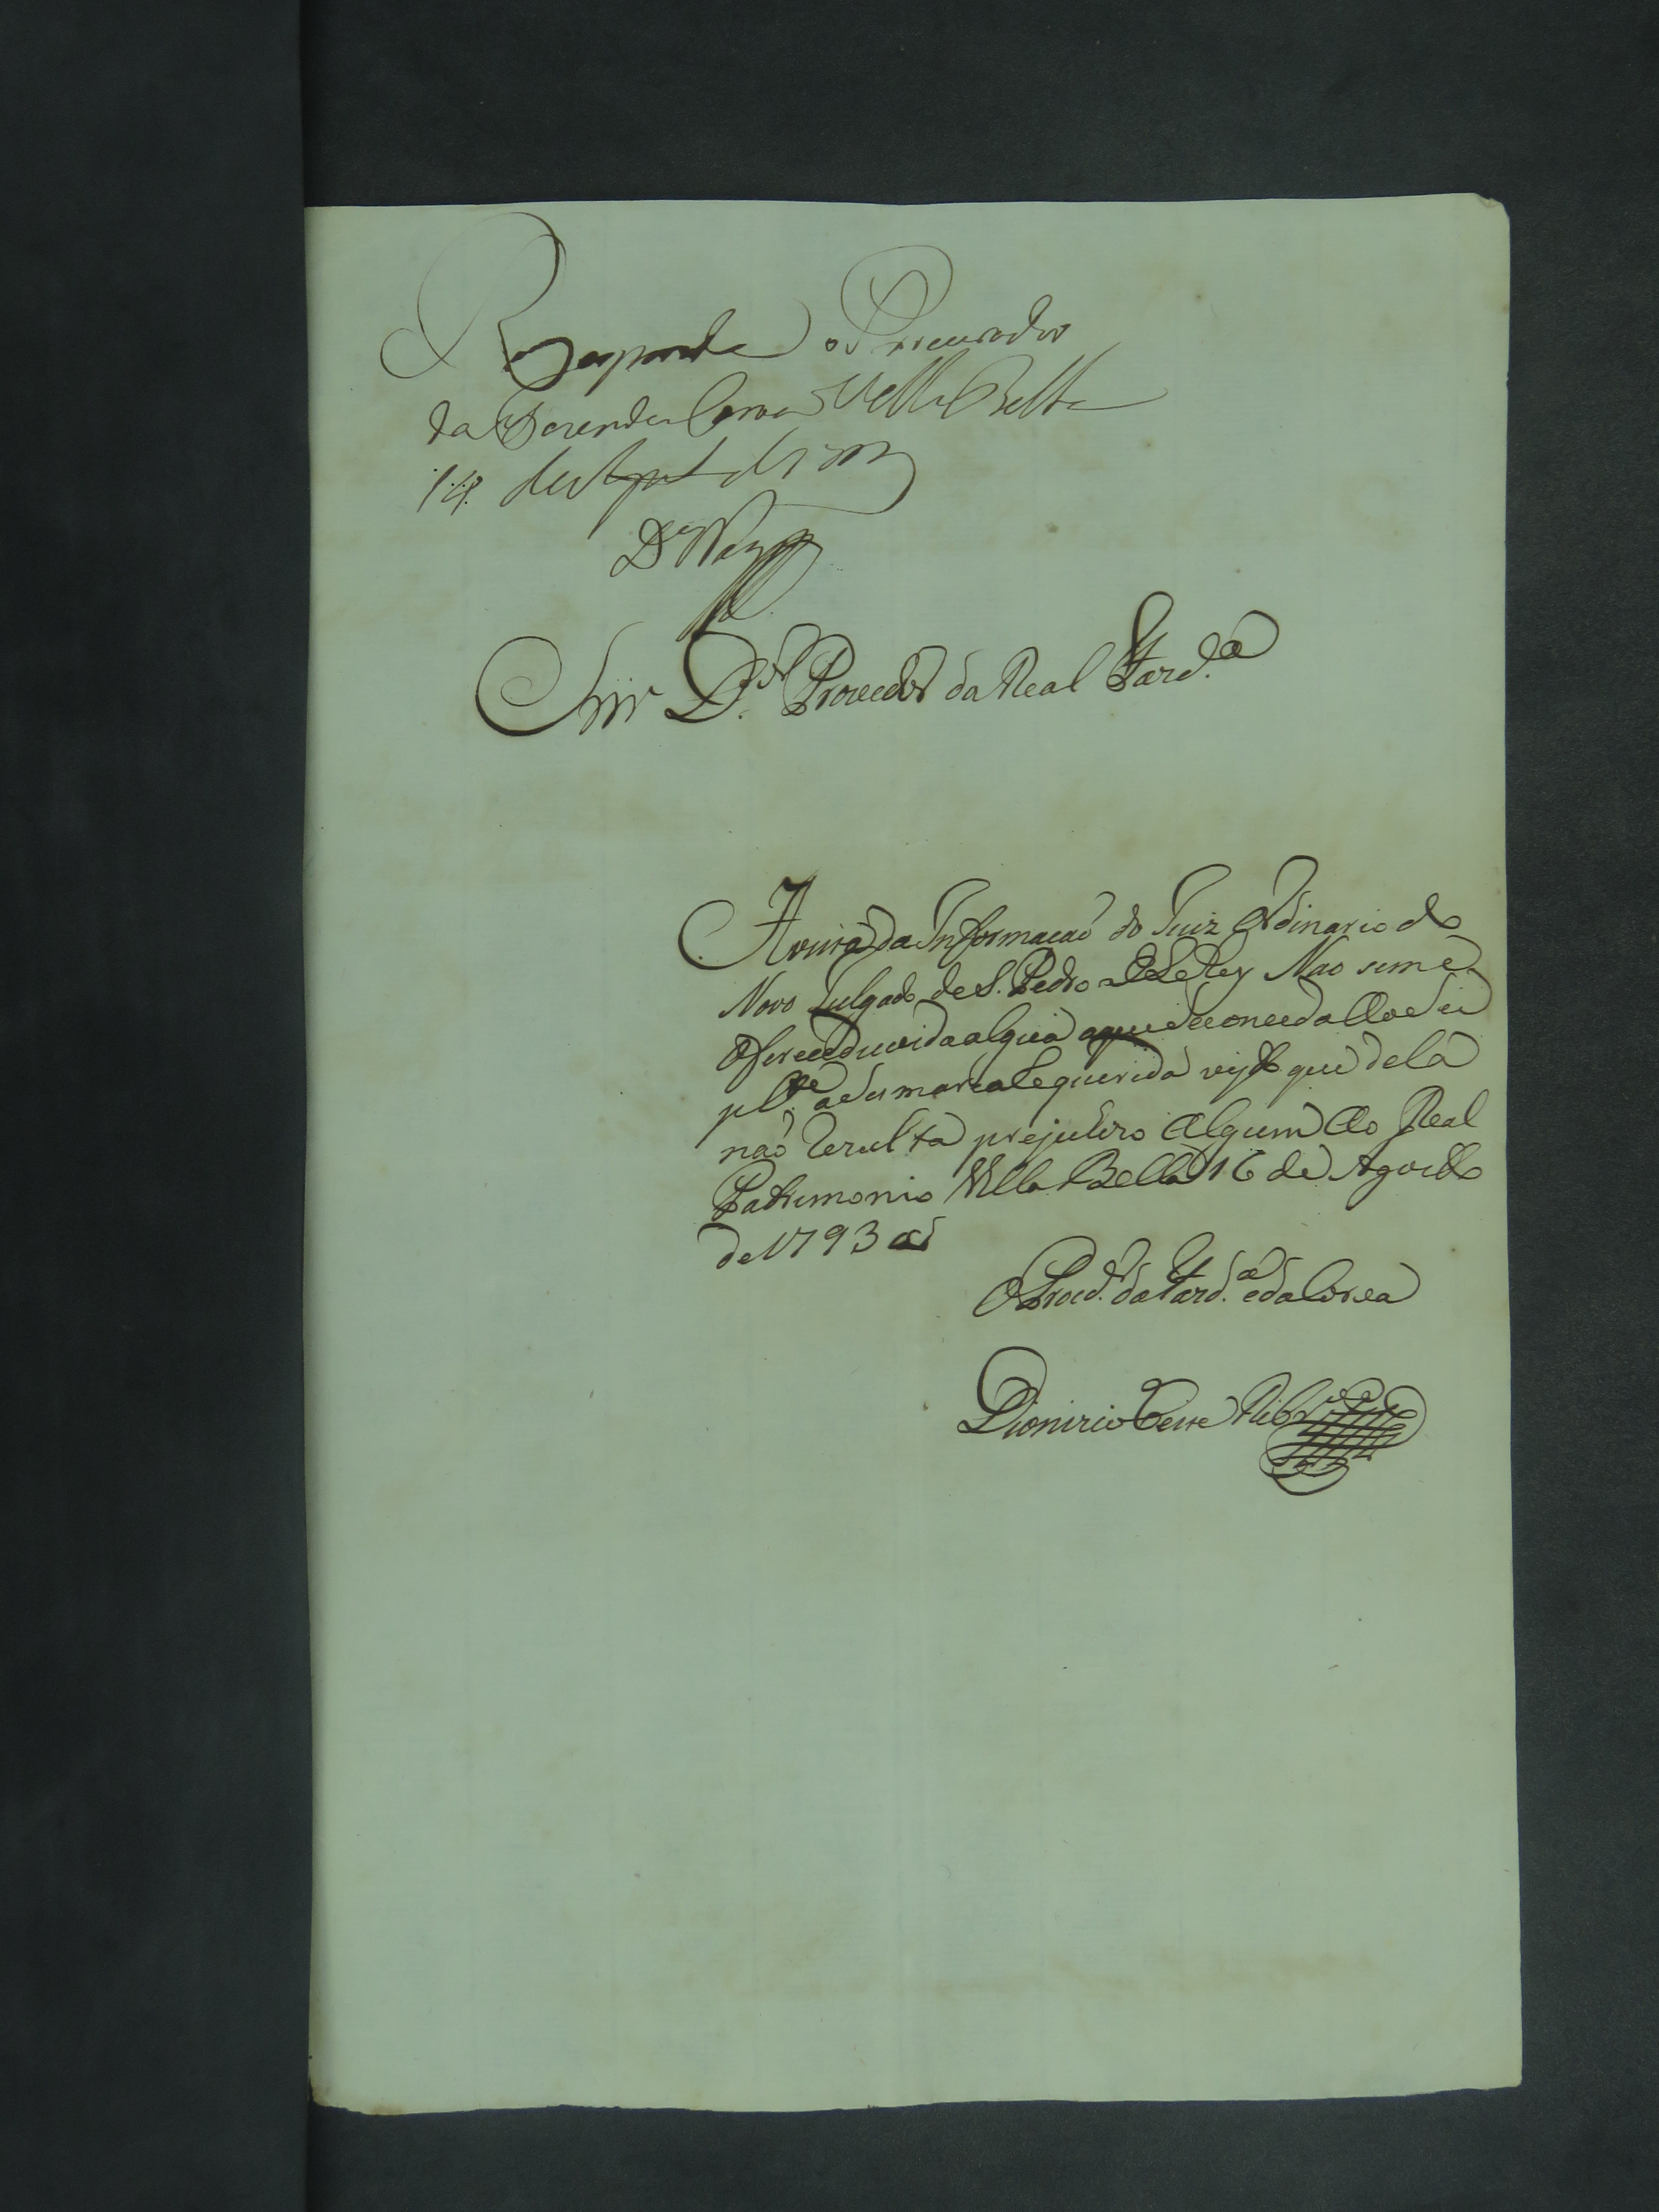 Responda o Procurador
da Fazenda Coroa Villa Bella
14 de Agt de
Snr D.or Provedor da Real Fazd.a
Avista da Informacaõ do Juiz Ordinario do
Novo Julgado de S. Pedro delRey Nao seme
oferece duvida algũa aque seconceda ao Su
pl.te a sesmaria Requerida visto que dela
naõ Rezulta prejuizo Algum ao Real
Patrimonio Villa Bella 16 de Agosto
de 1793 as
O Procd.or da Fazd.a e da Coroa
Dionizio Ribr.o